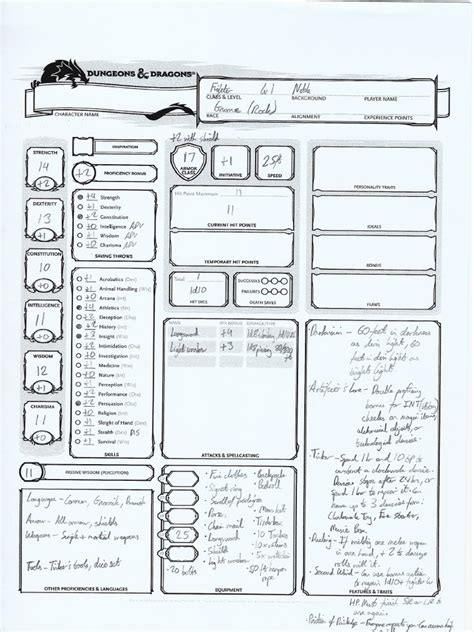 DUNGEONS & DRAGONS®
Fighter lvl 1 Noble
CLASS & LEVEL BACKGROUND PLAYER NAME
Gnome (Rock)
CHARACTER NAME RACE ALIGNMENT EXPERIENCE POINTS
+2 with shield
STRENGTH
14
+2
DEXTERITY
13
+1
CONSTITUTION
10
+0
INTELLIGENCE
11
+0
WISDOM
12
+1
CHARISMA
11
+0
INSPIRATION
+2 PROFICIENCY BONUS
+4 Strength
+1 Dexterity
+2 Constitution
+0 Intelligence ADV
+1 Wisdom ADV
+0 Charisma ADV
SAVING THROWS
+1 Acrobatics (Dex)
+1 Animal Handling (Wis)
+0 Arcana (Int)
+4 Athletics (Str)
Deception (Cha)
+2 History (Int)
+3 Insight (Wis)
Intimidation (Cha)
Investigation (Int)
Medicine (Wis)
Nature (Int)
+1 Perception (Wis)
Performance (Cha)
+2 Persuasion (Cha)
Religion (Int)
Sleight of Hand (Dex)
Stealth (Dex) DIS
Survival (Wis)
SKILLS
11 PASSIVE WISDOM (PERCEPTION)
Languages - Common, Gnomish,
Armour - All armour, shields
Weapons - Simple + martial weapons
Tools - Tinker's tools, dice set
OTHER PROFICIENCIES & LANGUAGES
17
ARMOR CLASS
+1
INITIATIVE
25ft
SPEED
Hit Point Maximum
11
CURRENT HIT POINTS
TEMPORARY HIT POINTS
Total 1
1d10
HIT DICE
SUCCESSES
FAILURES
DEATH SAVES
NAME ATK BONUS DAMAGE/TYPE
Longsword +4
Light crossbow +3
ATTACKS & SPELLCASTING
25
• Fine clothes
• Signet ring
• Scroll of pedigree
• Purse
• Chain mail
• Longsword
• Shield
• Light crossbow
• 20 bolts
• Backpack
• Bedroll
• Mess kit
• Tinderbox
• 10 Torches
• 10 Rations
• Waterskin
EQUIPMENT
PERSONALITY TRAITS
IDEALS
BONDS
FLAWS
Darkvision - 60 feet in darkness
as dim light, 60
feet in dim light as
bright light
Artificer's Lore - Double proficiency
bonus for INT (History)
checks on magic items,
alchemical objects, or
technological devices
Tinker - Spend 1hr and 10gp to
construct a clockwork device.
Device stops after 24hr, or
spend 1hr to repair it. Can
have up to 3 devices from:
Clockwork Toy, Fire Starter,
Music Box.
Dueling - If melee weapon
in one hand, + 2 to damage
rolls with it.
Second Wind - Can use bonus action
to regain 1d10 + fighter lv
HP. Must finish S.R or L.R to
use again.
FEATURES & TRAITS
Position of Privilege -